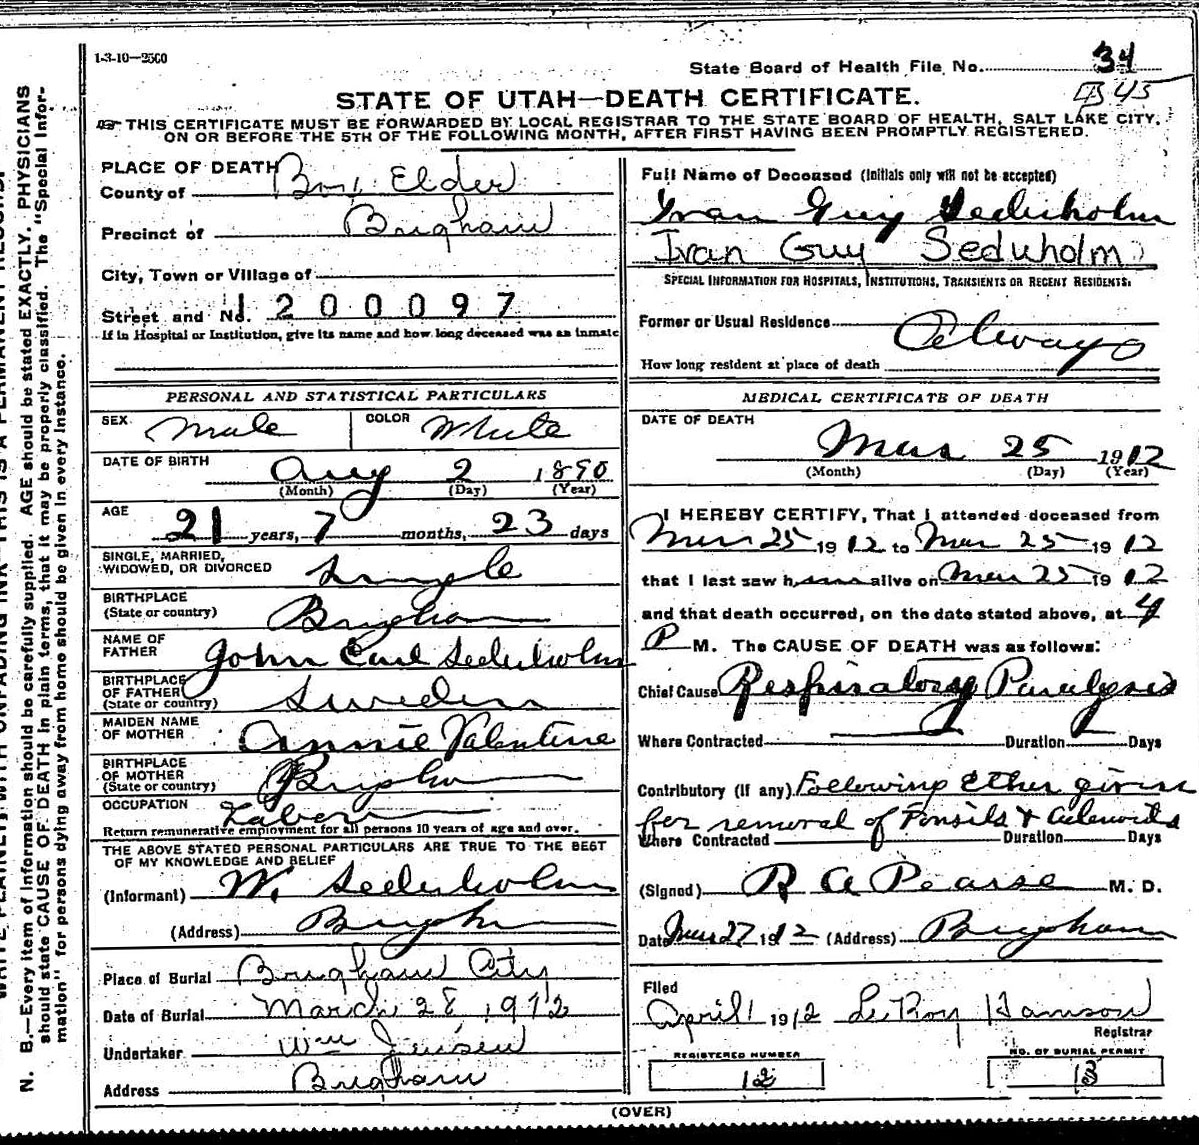 1-3-10—2500
State Board of Health File No. 34
B 45
STATE OF UTAH—DEATH CERTIFICATE.
THIS CERTIFICATE MUST BE FORWARDED BY LOCAL REGISTRAR TO THE STATE BOARD OF HEALTH, SALT LAKE CITY,
ON OR BEFORE THE 5TH OF THE FOLLOWING MONTH, AFTER FIRST HAVING BEEN PROMPTLY REGISTERED.
PLACE OF DEATH
County of Box Elder
Precinct of Brigham
City, Town or Village of
Street and No. 1200097
If in Hospital or Institution, give its name and how long deceased was an inmate
Full Name of Deceased (Initials only will not be accepted)
Ivan Guy Sederholm
Ivan Guy Sederholm
SPECIAL INFORMATION FOR HOSPITALS, INSTITUTIONS, TRANSIENTS OR RECENT RESIDENTS.
Former or Usual Residence
Always
How long resident at place of death
PERSONAL AND STATISTICAL PARTICULARS
SEX Male COLOR White
DATE OF BIRTH Aug 2 1890
(Month) (Day) (Year)
AGE 21 years, 7 months, 23 days
SINGLE, MARRIED,
WIDOWED, OR DIVORCED Single
BIRTHPLACE
(State or country) Brigham
NAME OF
FATHER John Carl Sederholm
BIRTHPLACE
OF FATHER
(State or country) Sweden
MAIDEN NAME
OF MOTHER Annie Valentine
BIRTHPLACE
OF MOTHER
(State or country) Brigham
OCCUPATION Laborer
Return remunerative employment for all persons 10 years of age and over.
THE ABOVE STATED PERSONAL PARTICULARS ARE TRUE TO THE BEST
OF MY KNOWLEDGE AND BELIEF
(Informant) W. Sederholm
(Address) Brigham
Place of Burial Brigham City
Date of Burial March 28, 1912
Undertaker Wm Jensen
Address Brigham
MEDICAL CERTIFICATE OF DEATH
DATE OF DEATH
Mar 25 1912
(Month) (Day) (Year)
I HEREBY CERTIFY, That I attended deceased from
Mar 25 1912 to Mar 25 1912
that I last saw him alive on Mar 25 1912
and that death occurred, on the date stated above, at 4
P M. The CAUSE OF DEATH was as follows:
Chief Cause Respiratory Paralysis
Where Contracted Duration Days
Contributory (if any) Following Ether given
for removal of Tonsils & Adenoids
Where Contracted Duration Days
(Signed) R A Pearse M. D.
Date Mar 27 1912 (Address) Brigham
Filed
April 1 1912 LeRoy Hanson
Registrar
REGISTERED NUMBER
12
NO. OF BURIAL PERMIT
13
(OVER)
N. B.—Every item of information should be carefully supplied. AGE should be stated EXACTLY. PHYSICIANS
should state CAUSE OF DEATH in plain terms, that it may be properly classified. The "Special Infor-
mation" for persons dying away from home should be given in every instance.